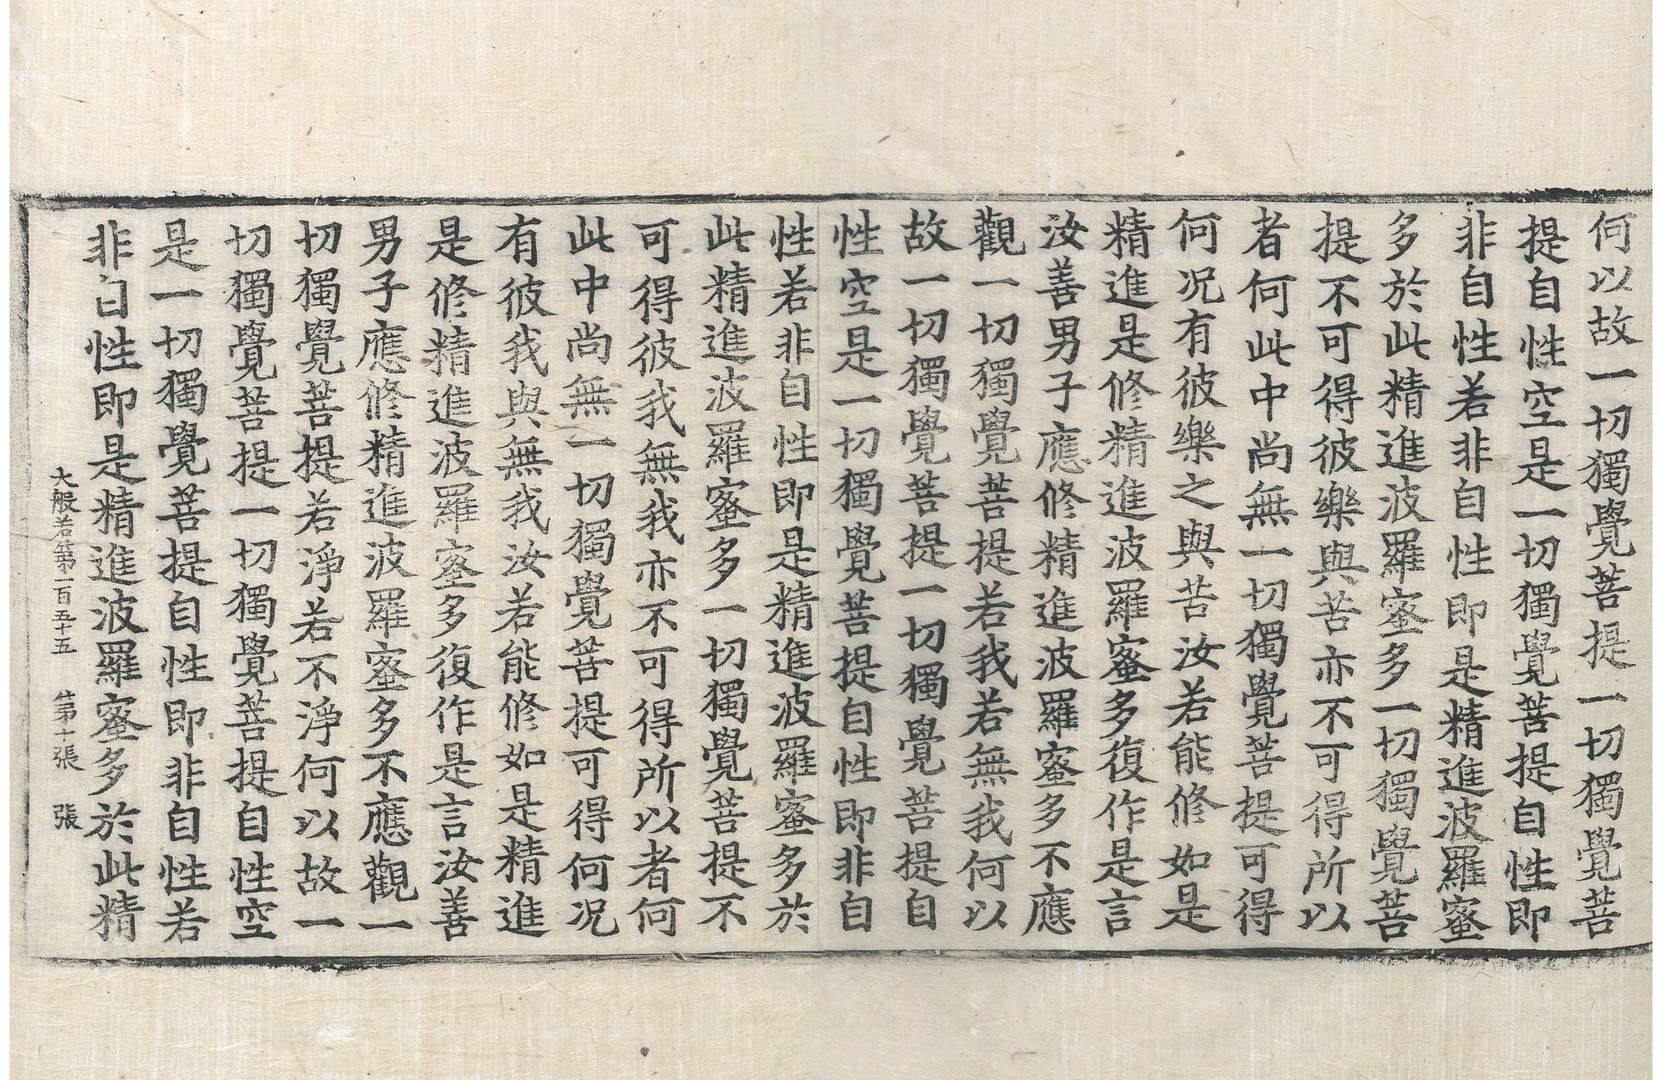 何以故一切獨覺菩提一切獨覺菩
提自性空是一切獨覺菩提自性即
非自性若非自性即是精進波羅蜜
多於此精進波羅蜜多一切獨覺菩
提不可得彼樂與苦亦不可得所以
者何此中尚無一切獨覺菩提可得
何况有彼樂之與苦汝若能修如是
精進是修精進波羅蜜多復作是言
汝善男子應修精進波羅蜜多不應
觀一切獨覺菩提若我若無我何以
故一切獨覺菩提一切獨覺菩提自
性空是一切獨覺菩提自性即非自
性若非自性即是精進波羅蜜多於
此精進波羅蜜多一切獨覺菩提不
可得彼我無我亦不可得所以者何
此中尚無一切獨覺菩提可得何况
有彼我與無我汝若能修如是精進
是修精進波羅蜜多復作是言汝善
男子應修精進波羅蜜多不應觀一
切獨覺菩提若淨若不淨何以故一
切獨覺菩提一切獨覺菩提自性空
是一切獨覺菩提自性即非自性若
非自性即是精進波羅蜜多於此精
大般若第一百五十五 第十張 張